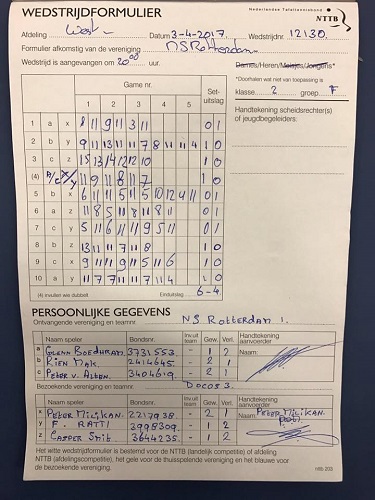 WEDSTRIJDFORMULIER
Nederlandse Tafeltennisbond
NTTB
Afdeling West Datum 3-4-2017 Wedstrijdnr. 12130.
Formulier afkomstig van de vereniging NSRotterdam
Wedstrijd is aangevangen om 20:00 uur.
Dames/Heren/Meisjes/Jongens*
*Doorhalen wat niet van toepassing is
klasse 2 groep F
Handtekening scheidsrechter(s)
of jeugdbegeleiders:
Game nr. Set-
uitslag
1 2 3 4 5
1 a x 8 11 9 11 3 11 0 1
2 b y 9 11 13 11 11 7 8 11 11 4 1 0
3 c z 15 13 14 12 12 10 1 0
(4) b/c x/y 11 9 11 8 11 7 1 0
5 b x 6 11 11 5 11 5 10 12 4 11 0 1
6 a z 11 8 5 11 8 11 8 11 0 1
7 c y 5 11 6 11 11 9 5 11 0 1
8 b z 13 11 11 7 11 8 1 0
9 c x 9 11 11 9 11 5 11 6 1 0
10 a y 11 7 7 11 11 7 11 4 1 0
(4) invullen wie dubbelt Einduitslag 6-4
PERSOONLIJKE GEGEVENS
Ontvangende vereniging en teamnr. NS Rotterdam 1.
Naam speler Bondsnr. Inv.uit team Gew. Verl. Handtekening aanvoerder
a Glenn Boedhram 3731553 - 1 2 Naam:
b Rien Mak. 2414645 - 2 1
c Peter v. 3404619 - 1 2
Bezoekende vereniging en teamnr. Docos 3.
Naam speler Bondsnr. Inv.uit team Gew. Verl. Handtekening aanvoerder
x Peter Milikan. 2217938 - 2 1 Peter Milikan.
y F. Ratti 3998309 - 1 2
z Casper Smit. 3644235 - 1 2
Het witte wedstrijdformulier is bestemd voor de NTTB (landelijk competitie) of afdeling
NTTB (afdelingscompetitie), het gele voor de thuisspelende vereniging en het blauwe voor
de bezoekende vereniging.
nttb 203